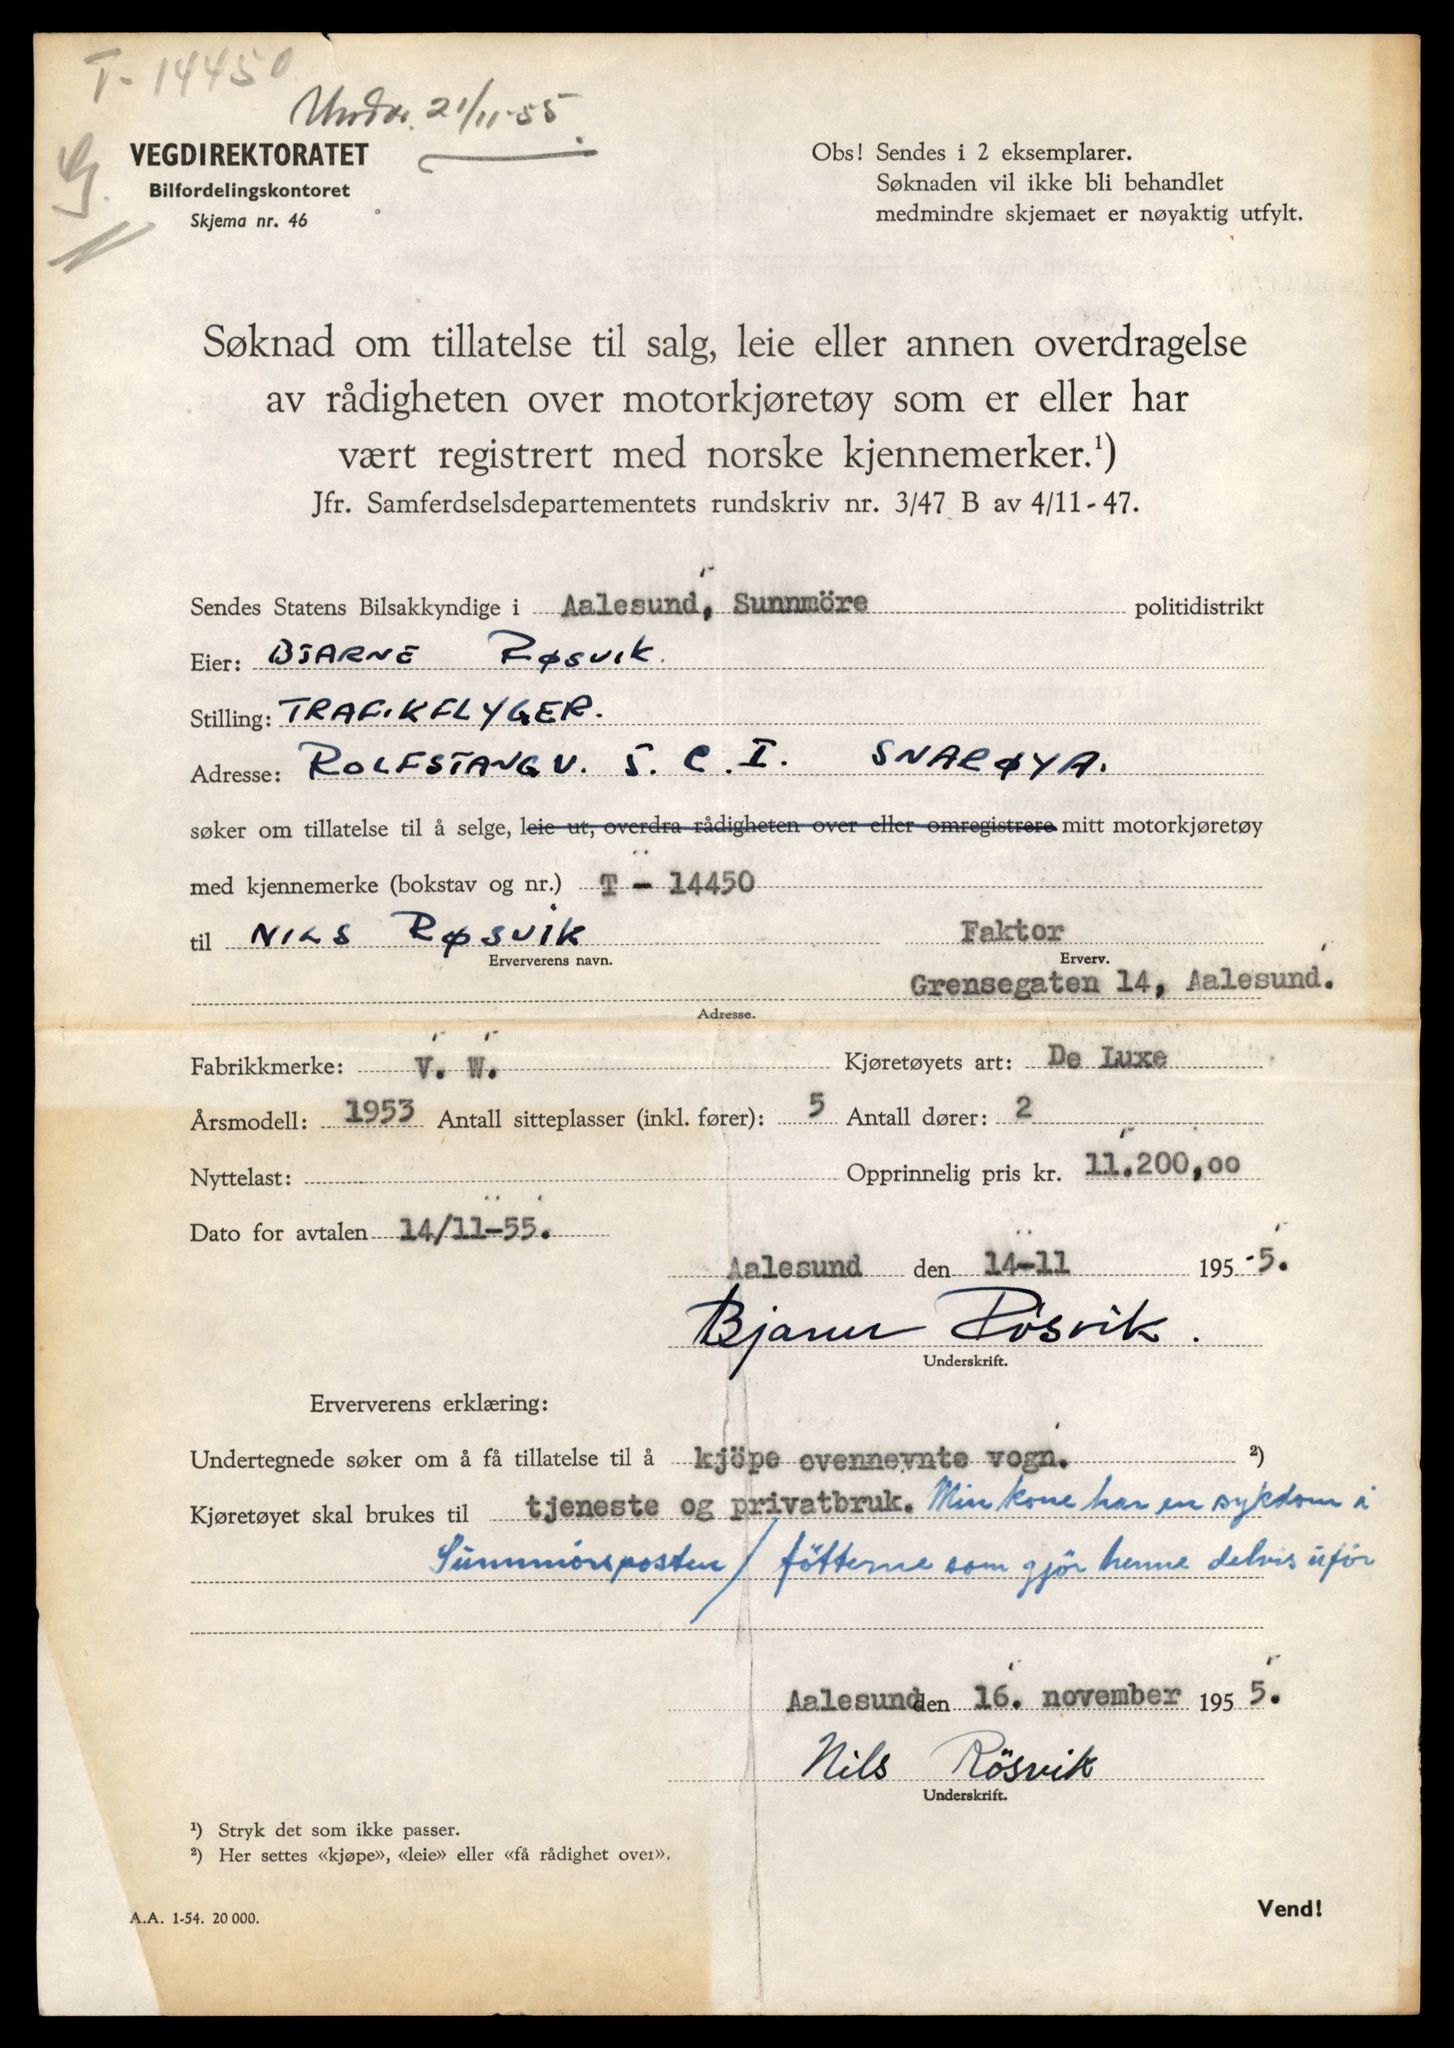 T-14450
21/11-55
VEGDIREKTORATET
Bilfordelingskontoret
Skjema nr. 46
Obs! Sendes i 2 eksemplarer.
Søknaden vil ikke bli behandlet
medmindre skjemaet er nøyaktig utfylt.
Søknad om tillatelse til salg, leie eller annen overdragelse
av rådigheten over motorkjøretøy som er eller har
vært registrert med norske kjennemerker.¹)
Jfr. Samferdselsdepartementets rundskriv nr. 3/47 B av 4/11-47.
Sendes Statens Bilsakkyndige i Aalesund, Sunnmöre politidistrikt
Eier: BJARNE RØSVIK.
Stilling: TRAFIKFLYGER.
Adresse: ROLFSTANGV. 5. C. I. SNARØYA.
søker om tillatelse til å selge, leie ut, overdra rådigheten over eller omregistrere mitt motorkjøretøy
med kjennemerke (bokstav og nr.) T - 14450
til NILS RØSVIK Faktor
Erververens navn. Erverv.
Grensegaten 14, Aalesund.
Adresse.
Fabrikkmerke: V. W. Kjøretøyets art: De Luxe
Årsmodell: 1953 Antall sitteplasser (inkl. fører): 5 Antall dører: 2
Nyttelast: Opprinnelig pris kr. 11.200,oo
Dato for avtalen 14/11-55.
Aalesund den 14-11 195 5.
Bjarne Rösvik.
Underskrift.
Erververens erklæring:
Undertegnede søker om å få tillatelse til å kjöpe ovennevnte vogn. ²)
Kjøretøyet skal brukes til tjeneste og privatbruk. Min kone har en sykdom i
Sunnmörsposten / föttene som gjör henne delvis ufør
Aalesund den 16. november 195 5.
Nils Rösvik
Underskrift.
¹) Stryk det som ikke passer.
²) Her settes «kjøpe», «leie» eller «få rådighet over».
A.A. 1-54. 20 000.
Vend!